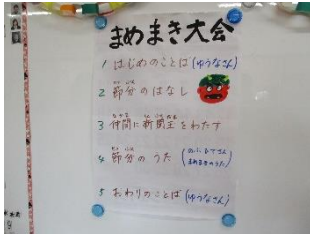 まめまき大会
1 はじめのことば (ゆうなさん)
2 節分のはなし
3 仲間に新聞玉をわたす
4 節分のうた
まめまきのうた
5 おわりのことば (ゆうなさん)